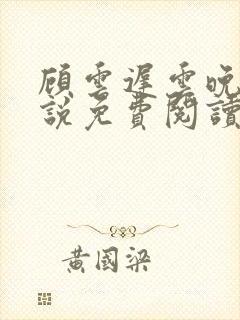 顾雲遲雲晚
說免費閱讀
黃國梁